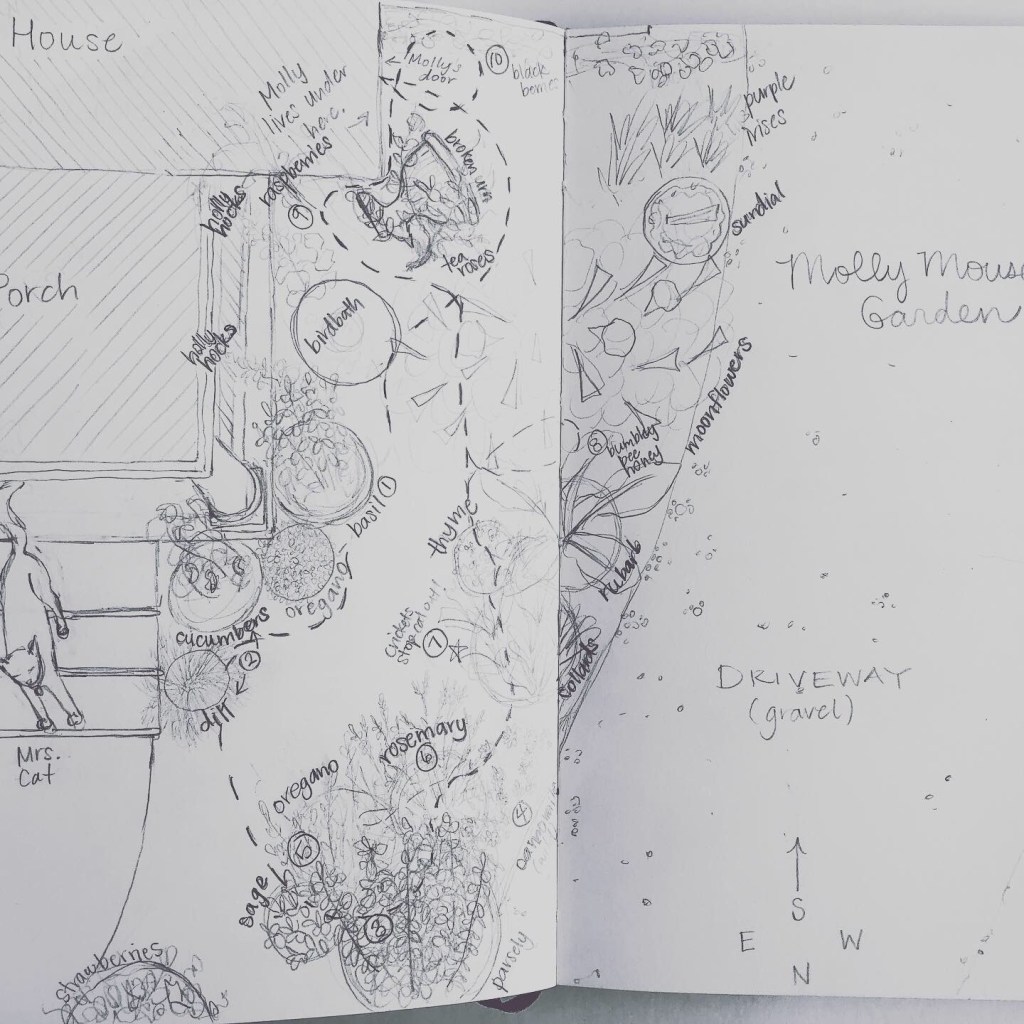 House
Molly
lives under
here.
Molly's
door
10
black
berries
broken urn
tea
roses
raspberries
9
holly
hocks
Porch
holly
hocks
birdbath
basil 1
oregano
cucumbers
2
dill
Mrs.
Cat
thyme
crickets
7
rosemary
6
oregano
5
sage
3
4
parsely
strawberries
purple
irises
sundial
Molly Mouse
Garden
moonflowers
8 bumbley
bee
honey
rubarb
collards
DRIVEWAY
(gravel)
S
E W
N